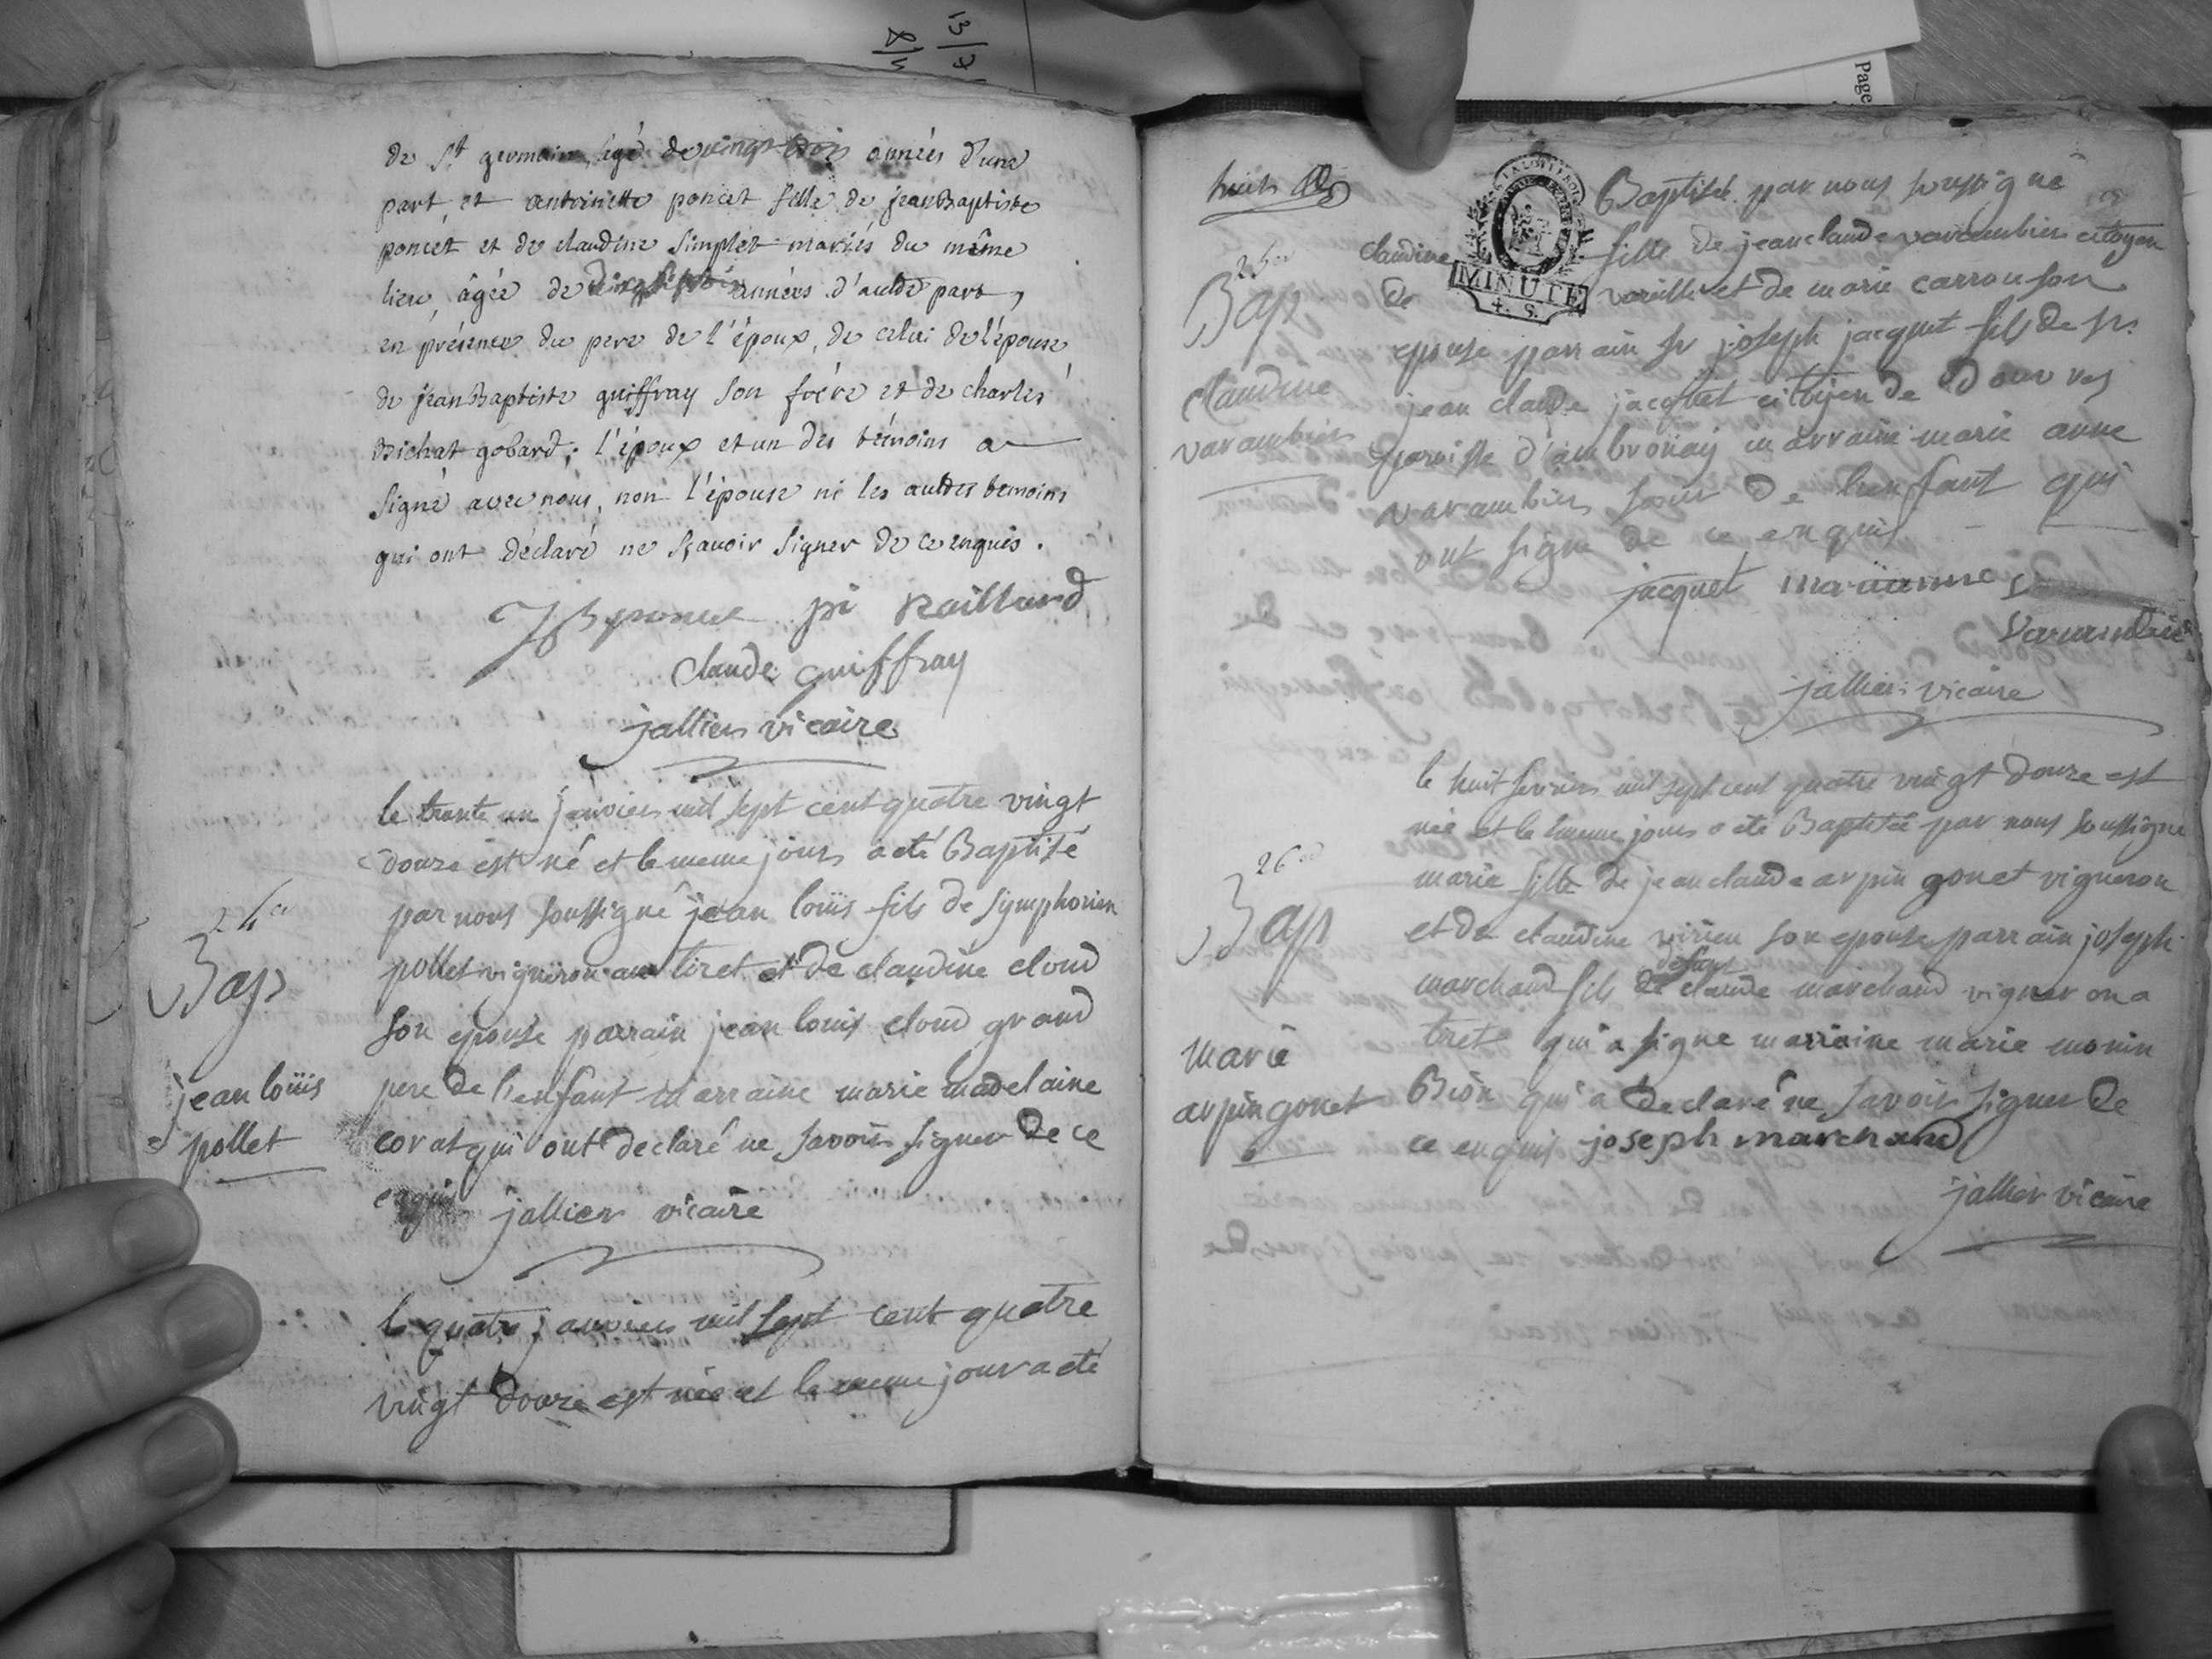 de St germain, agé de vingt trois années d'une
part, et antoinette poncet fille de jeanBaptiste
poncet et de claudine simplet mariés du même
lieu, âgée de années d'autre part,
en présence du pere de l'époux, de celui de l'épouse
de jeanBaptiste guiffray son frére et de charles
Bichat gobard; l'époux et un des témoins a
signé avec nous, non l'épouse ni les autres temoins
qui ont déclaré ne sçavoir signer de ce enquis.
JB poncet Raillard
Claude guiffray
jallier vicaire
le trante un janvier mil sept cent quatre vingt
douze est né et le meme jour a eté Baptisé
par nous soussigné jean loüis fils de symphorien
pollet vigneron au tiret et de claudine cloud
son epouse parrain jean louis cloud grand
pere de l'enfant marraine marie madelaine
corat qui ont declaré ne savoir signer de ce
enquis jallier vicaire
24
Bap
jean loüis
pollet
le quatre janvier mil sept cent quatre
vingt douze est née et le meme jour a eté
huit
MINUTE
4. S.
Baptisée par nous soussigné
claudine fille de jean claude varambier citoyen
de varille et de marie carron son
epouse parrain sr joseph jacquet fils de sr
jean claude jacquet citoyen de douvres
paroisse d'ambronay marraine marie anne
varambier soeur de l'enfant qui
ont signe de ce enquis
25
Bap
claudine
varambier
jacquet marianne
varambier
jallier vicaire
le huit fevrier mil sept cent quatre vingt douze est
née et le meme jour a eté Baptisée par nous soussigne
marie fille de jean claude arpin gonet vigneron
et de claudine virieu son epouse parrain joseph
marchand fils de defunt claude marchand vigneron a
tiret qui a signe marraine marie monin
Bion qui a declaré ne savoir signer de
ce enquis joseph marchand
jallier vicaire
26
Bap
marie
arpin gonet
13/7
Page